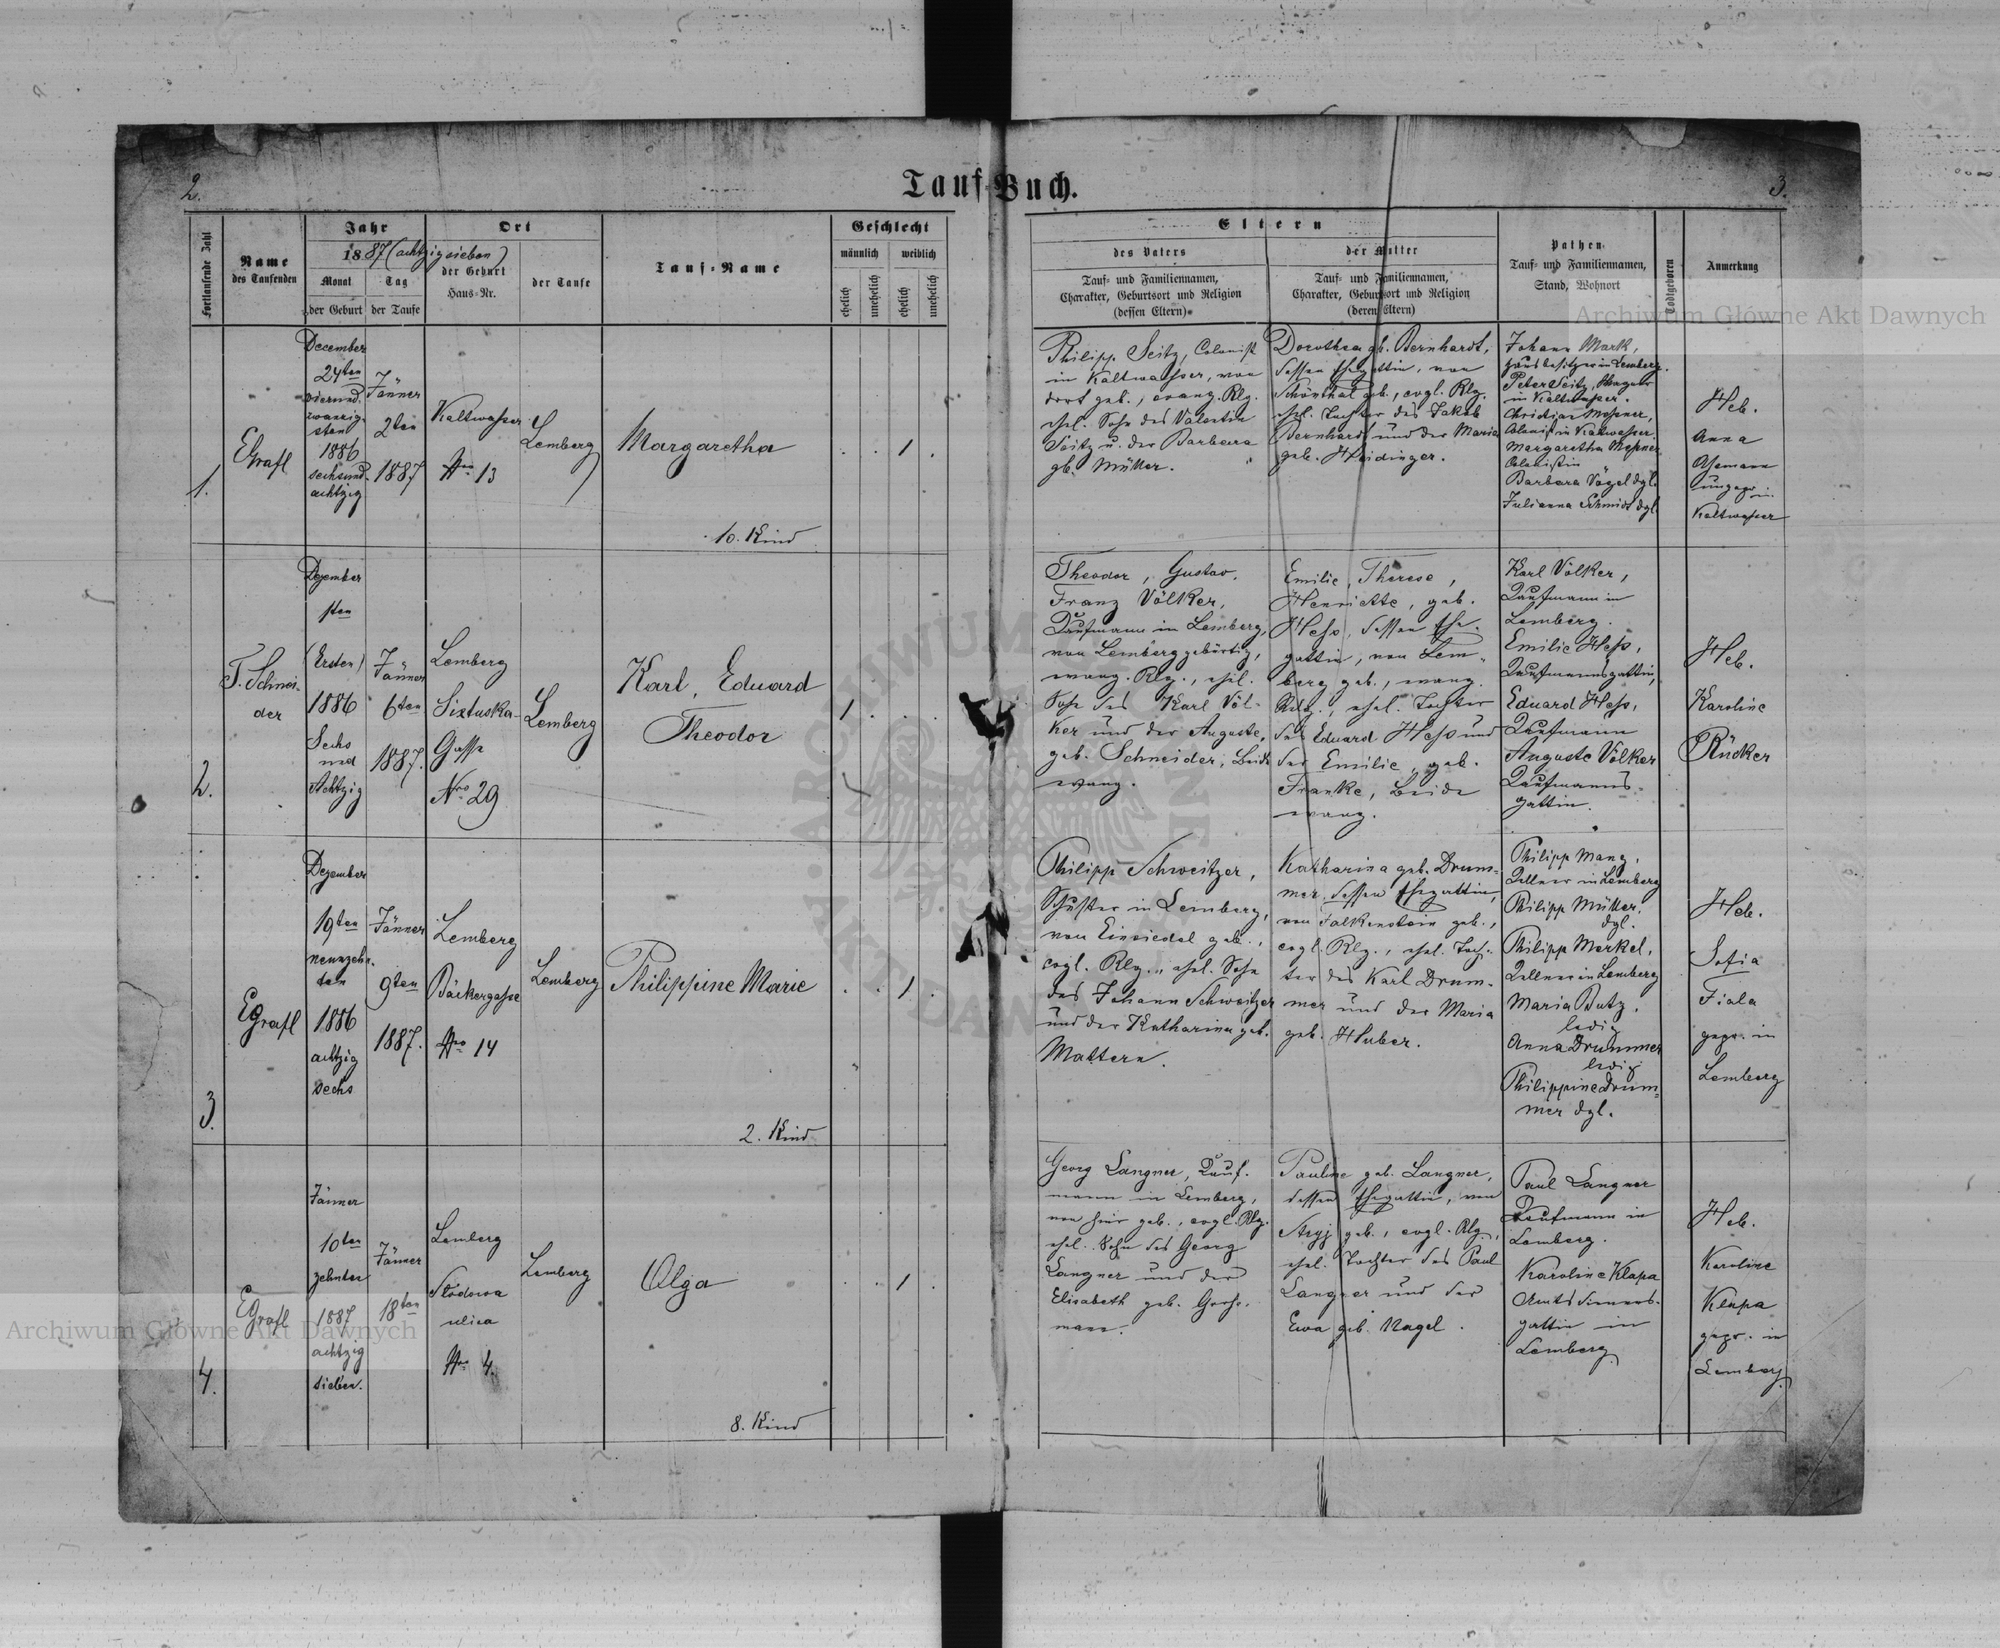 2.
Tauf-Buch.
3.
Fortlaufende Zahl
Name
des Taufenden
Jahr
1887 (achtzigsieben)
Monat
Tag
der Geburt
der Taufe
Ort
der Geburt
Haus-Nr.
der Taufe
Tauf-Name
Geschlecht
männlich
weiblich
ehelich
unehelich
ehelich
unehelich
Eltern
des Vaters
Tauf- und Familiennamen,
Charakter, Geburtsort und Religion
(dessen Eltern)
der Mutter
Tauf- und Familiennamen,
Charakter, Geburtsort und Religion
(deren Eltern)
Pathen
Tauf- und Familiennamen,
Stand, Wohnort
Todtgeboren
Anmerkung
Archiwum Główne Akt Dawnych
1.
EGrafl
December
24ten
vierund
zwanzig
sten
1886
sechsund
achtzig
Jänner
2ten
1887
Kaltwasser
Nro 13
Lemberg
Margaretha
10. Kind
1
Philipp Seitz, Colonist
in Kaltwasser, von
dort geb., evang. Rlg.
ehel. Sohn des Valentin
Seitz u. der Barbara
gb. Müller.
Dorothea gb. Bernhardt,
dessen Ehegattin, von
Schönthal geb., evgl. Rlg.
ehel. Tochter des Jakob
Bernhardt und der Maria
geb. Heidinger.
Johann Mark,
Hausbesitzer in Lemberg.
Peter Seitz,
in Kaltwasser.
Christian Mosner,
Colonist in Kaltwasser.
Margaretha Mosner
Colonistin
Barbara Vogel dgl.
Julianna Schmidt dgl.
Heb.
Anna
ungepr. in
Kaltwasser
2.
T. Schnei-
der
Dezember
1ten
(Ersten)
1886
Sechs
und
Achtzig
Jänner
6ten
1887.
Lemberg
Sixtuska-
Gasse
Nro 29
Lemberg
Karl, Eduard
Theodor
1
Theodor, Gustav,
Franz Völker,
Kaufmann in Lemberg,
von Lemberg gebürtig,
evang. Rlg., ehel.
Sohn des Karl Völ-
ker und der Auguste,
geb. Schneider, Beide
evang.
Emilie, Therese,
Henriette, geb.
Hess, dessen Ehe-
gattin, von Lem-
berg geb., evang.
Relg., ehel. Tochter
des Eduard Hess und
der Emilie, geb.
Franke, Beide
evang.
Karl Völker,
Kaufmann in
Lemberg.
Emilie Hess,
Kaufmannsgattin,
Eduard Hess,
Kaufmann
Auguste Völker
Kaufmanns-
gattin.
Heb.
Karoline
Rücker
3.
EGrafl
Dezember
19ten
neunzehn-
ten
1886
achtzig
sechs
Jänner
9ten
1887.
Lemberg
Bäckergasse
Nro 14
Lemberg
Philippine Marie
2. Kind
1
Philipp Schweitzer,
Schuster in Lemberg,
von Einsiedel geb.,
evgl. Rlg., ehel. Sohn
des Johann Schweitzer
und der Katharina geb.
Mattern.
Katharina geb. Drum-
mer, dessen Ehegattin,
von Falkenstein geb.,
evgl. Rlg., ehel. Toch-
ter des Karl Drum-
mer und der Maria
geb. Huber.
Philipp Mang,
Kellner in Lemberg
Philipp Müller,
dgl.
Philipp Merkel,
Kellner in Lemberg
Maria Butz,
ledig
Anna Drummer
ledig
Philippine Drum-
mer dgl.
Heb.
Sofia
Fiala
gepr. in
Lemberg
4.
EGrafl
Jänner
10ten
zehnten
1887
achtzig
sieben.
Jänner
18ten
Lemberg
Słodowa
ulica
Nro 4.
Lemberg
Olga
8. Kind
1
Georg Langner, Kauf-
mann in Lemberg,
von hier geb., evgl. Rlg.
ehel. Sohn des Georg
Langner und der
Elisabeth geb. Gross-
mann.
Pauline geb. Langner,
dessen Ehegattin, von
Stryj geb., evgl. Rlg.,
ehel. Tochter des Paul
Langner und der
Ewa geb. Nagel.
Paul Langner
Kaufmann in
Lemberg.
Karoline Klapa
Amtsdieners-
gattin in
Lemberg
Heb.
Karoline
Klapa
gepr. in
Lemberg
Archiwum Główne Akt Dawnych